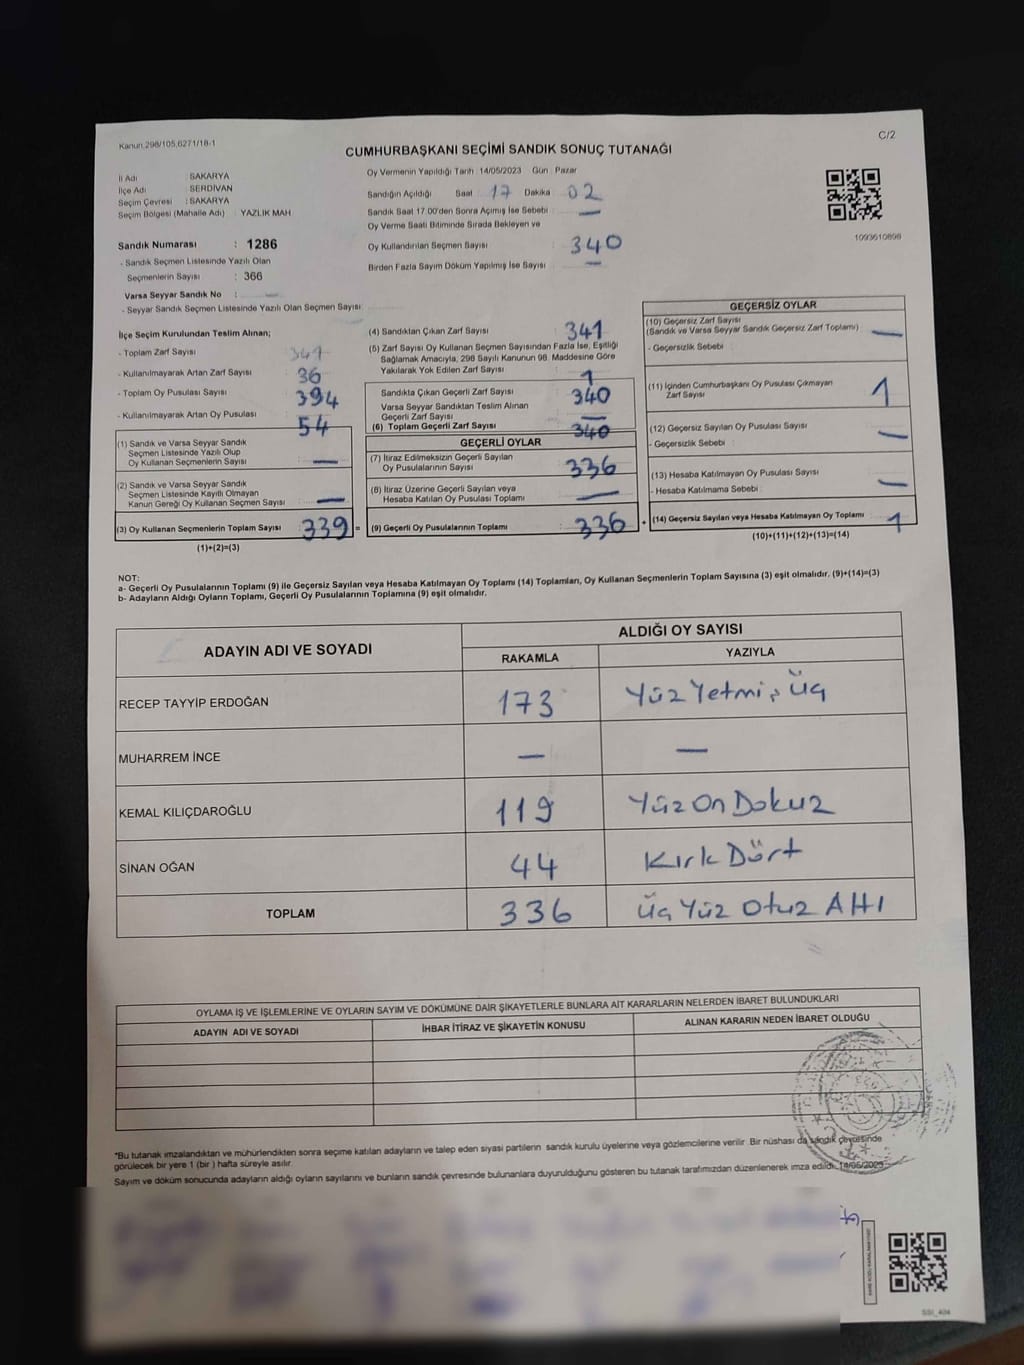 Kanun.298/105,6271/18-1
C/2
CUMHURBAŞKANI SEÇİMİ SANDIK SONUÇ TUTANAĞI
İl Adı : SAKARYA
İlçe Adı : SERDİVAN
Seçim Çevresi : SAKARYA
Seçim Bölgesi (Mahalle Adı) : YAZLIK MAH
Sandık Numarası : 1286
- Sandık Seçmen Listesinde Yazılı Olan
Seçmenlerin Sayısı : 366
Varsa Seyyar Sandık No :
- Seyyar Sandık Seçmen Listesinde Yazılı Olan Seçmen Sayısı
Oy Vermenin Yapıldığı Tarih : 14/05/2023 Gün : Pazar
Sandığın Açıldığı Saat : 17 Dakika : 02
Sandık Saat 17.00'den Sonra Açımış İse Sebebi : —
Oy Verme Saati Bitiminde Sırada Bekleyen ve
Oy Kullandırılan Seçmen Sayısı : 340
Birden Fazla Sayım Döküm Yapılmış İse Sayısı : —
1093610898
İlçe Seçim Kurulundan Teslim Alınan;
- Toplam Zarf Sayısı
- Kullanılmayarak Artan Zarf Sayısı : 36
- Toplam Oy Pusulası Sayısı : 394
- Kullanılmayarak Artan Oy Pusulası : 54
(1) Sandık ve Varsa Seyyar Sandık
Seçmen Listesinde Yazılı Olup
Oy Kullanan Seçmenlerin Sayısı : —
(2) Sandık ve Varsa Seyyar Sandık
Seçmen Listesinde Kayıtlı Olmayan
Kanun Gereği Oy Kullanan Seçmen Sayısı : —
(3) Oy Kullanan Seçmenlerin Toplam Sayısı : 339 =
(1)+(2)=(3)
(4) Sandıktan Çıkan Zarf Sayısı : 341
(5) Zarf Sayısı Oy Kullanan Seçmen Sayısından Fazla İse, Eşitliği
Sağlamak Amacıyla, 298 Sayılı Kanunun 98. Maddesine Göre
Yakılarak Yok Edilen Zarf Sayısı : 1
Sandıkta Çıkan Geçerli Zarf Sayısı : 340
Varsa Seyyar Sandıktan Teslim Alınan
Geçerli Zarf Sayısı : —
(6) Toplam Geçerli Zarf Sayısı : 340
GEÇERLİ OYLAR
(7) İtiraz Edilmeksizin Geçerli Sayılan
Oy Pusulalarının Sayısı : 336
(8) İtiraz Üzerine Geçerli Sayılan veya
Hesaba Katılan Oy Pusulası Toplamı : —
(9) Geçerli Oy Pusulalarının Toplamı : 336 +
GEÇERSİZ OYLAR
(10) Geçersiz Zarf Sayısı
(Sandık ve Varsa Seyyar Sandık Geçersiz Zarf Toplamı) : —
- Geçersizlik Sebebi :
(11) İçinden Cumhurbaşkanı Oy Pusulası Çıkmayan
Zarf Sayısı : 1
(12) Geçersiz Sayılan Oy Pusulası Sayısı : —
- Geçersizlik Sebebi :
(13) Hesaba Katılmayan Oy Pusulası Sayısı : —
- Hesaba Katılmama Sebebi :
(14) Geçersiz Sayılan veya Hesaba Katılmayan Oy Toplamı : 1
(10)+(11)+(12)+(13)=(14)
NOT:
a- Geçerli Oy Pusulalarının Toplamı (9) ile Geçersiz Sayılan veya Hesaba Katılmayan Oy Toplamı (14) Toplamları, Oy Kullanan Seçmenlerin Toplam Sayısına (3) eşit olmalıdır. (9)+(14)=(3)
b- Adayların Aldığı Oyların Toplamı, Geçerli Oy Pusulalarının Toplamına (9) eşit olmalıdır.
ADAYIN ADI VE SOYADI
ALDIĞI OY SAYISI
RAKAMLA YAZIYLA
RECEP TAYYİP ERDOĞAN 173 Yüz Yetmiş Üç
MUHARREM İNCE — —
KEMAL KILIÇDAROĞLU 119 Yüz On Dokuz
SİNAN OĞAN 44 Kırk Dört
TOPLAM 336 Üç Yüz Otuz Altı
OYLAMA İŞ VE İŞLEMLERİNE VE OYLARIN SAYIM VE DÖKÜMÜNE DAİR ŞİKAYETLERLE BUNLARA AİT KARARLARIN NELERDEN İBARET BULUNDUKLARI
ADAYIN ADI VE SOYADI İHBAR İTİRAZ VE ŞİKAYETİN KONUSU ALINAN KARARIN NEDEN İBARET OLDUĞU
*Bu tutanak imzalandıktan ve mühürlendikten sonra seçime katılan adayların ve talep eden siyasi partilerin sandık kurulu üyelerine veya gözlemcilerine verilir. Bir nüshası da sandık çevresinde
görülecek bir yere 1 (bir) hafta süreyle asılır.
Sayım ve döküm sonucunda adayların aldığı oyların sayılarını ve bunların sandık çevresinde bulunanlara duyurulduğunu gösteren bu tutanak tarafımızdan düzenlenerek imza edildi. 14/05/2023
SSI_404